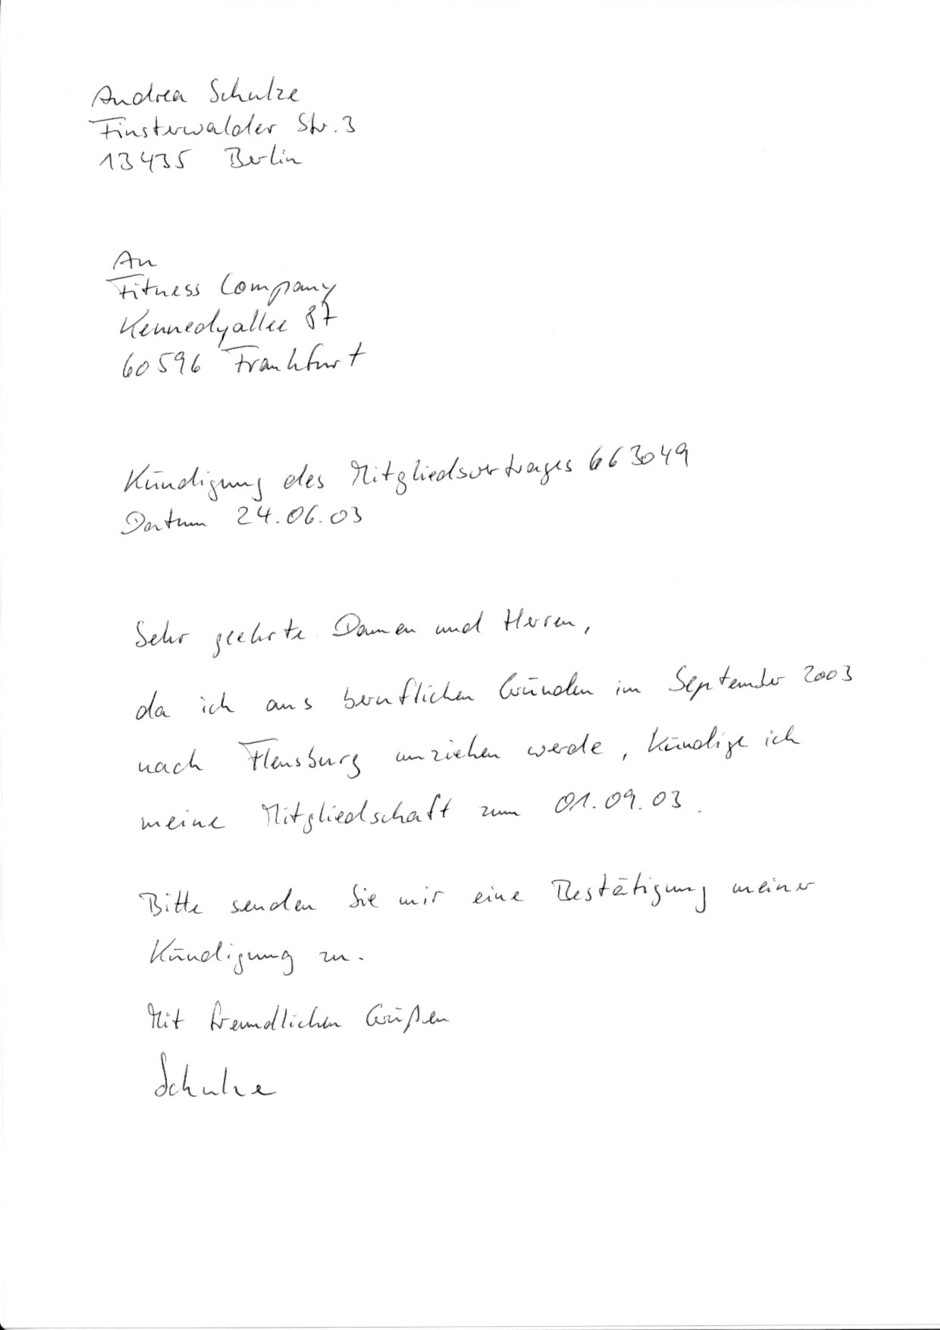 Andrea Schulze
Finsterwalder Str. 3
13435 Berlin
An
Fitness Company
Kennedyallee 87
60596 Frankfurt
Kündigung des Mitgliedsvertrages 663049
Datum 24.06.03
Sehr geehrte Damen und Herren,
da ich aus beruflichen Gründen im September 2003
nach Flensburg umziehen werde, kündige ich
meine Mitgliedschaft zum 01.09.03.
Bitte senden Sie mir eine Bestätigung meiner
Kündigung zu.
Mit freundlichen Grüßen
Schulze